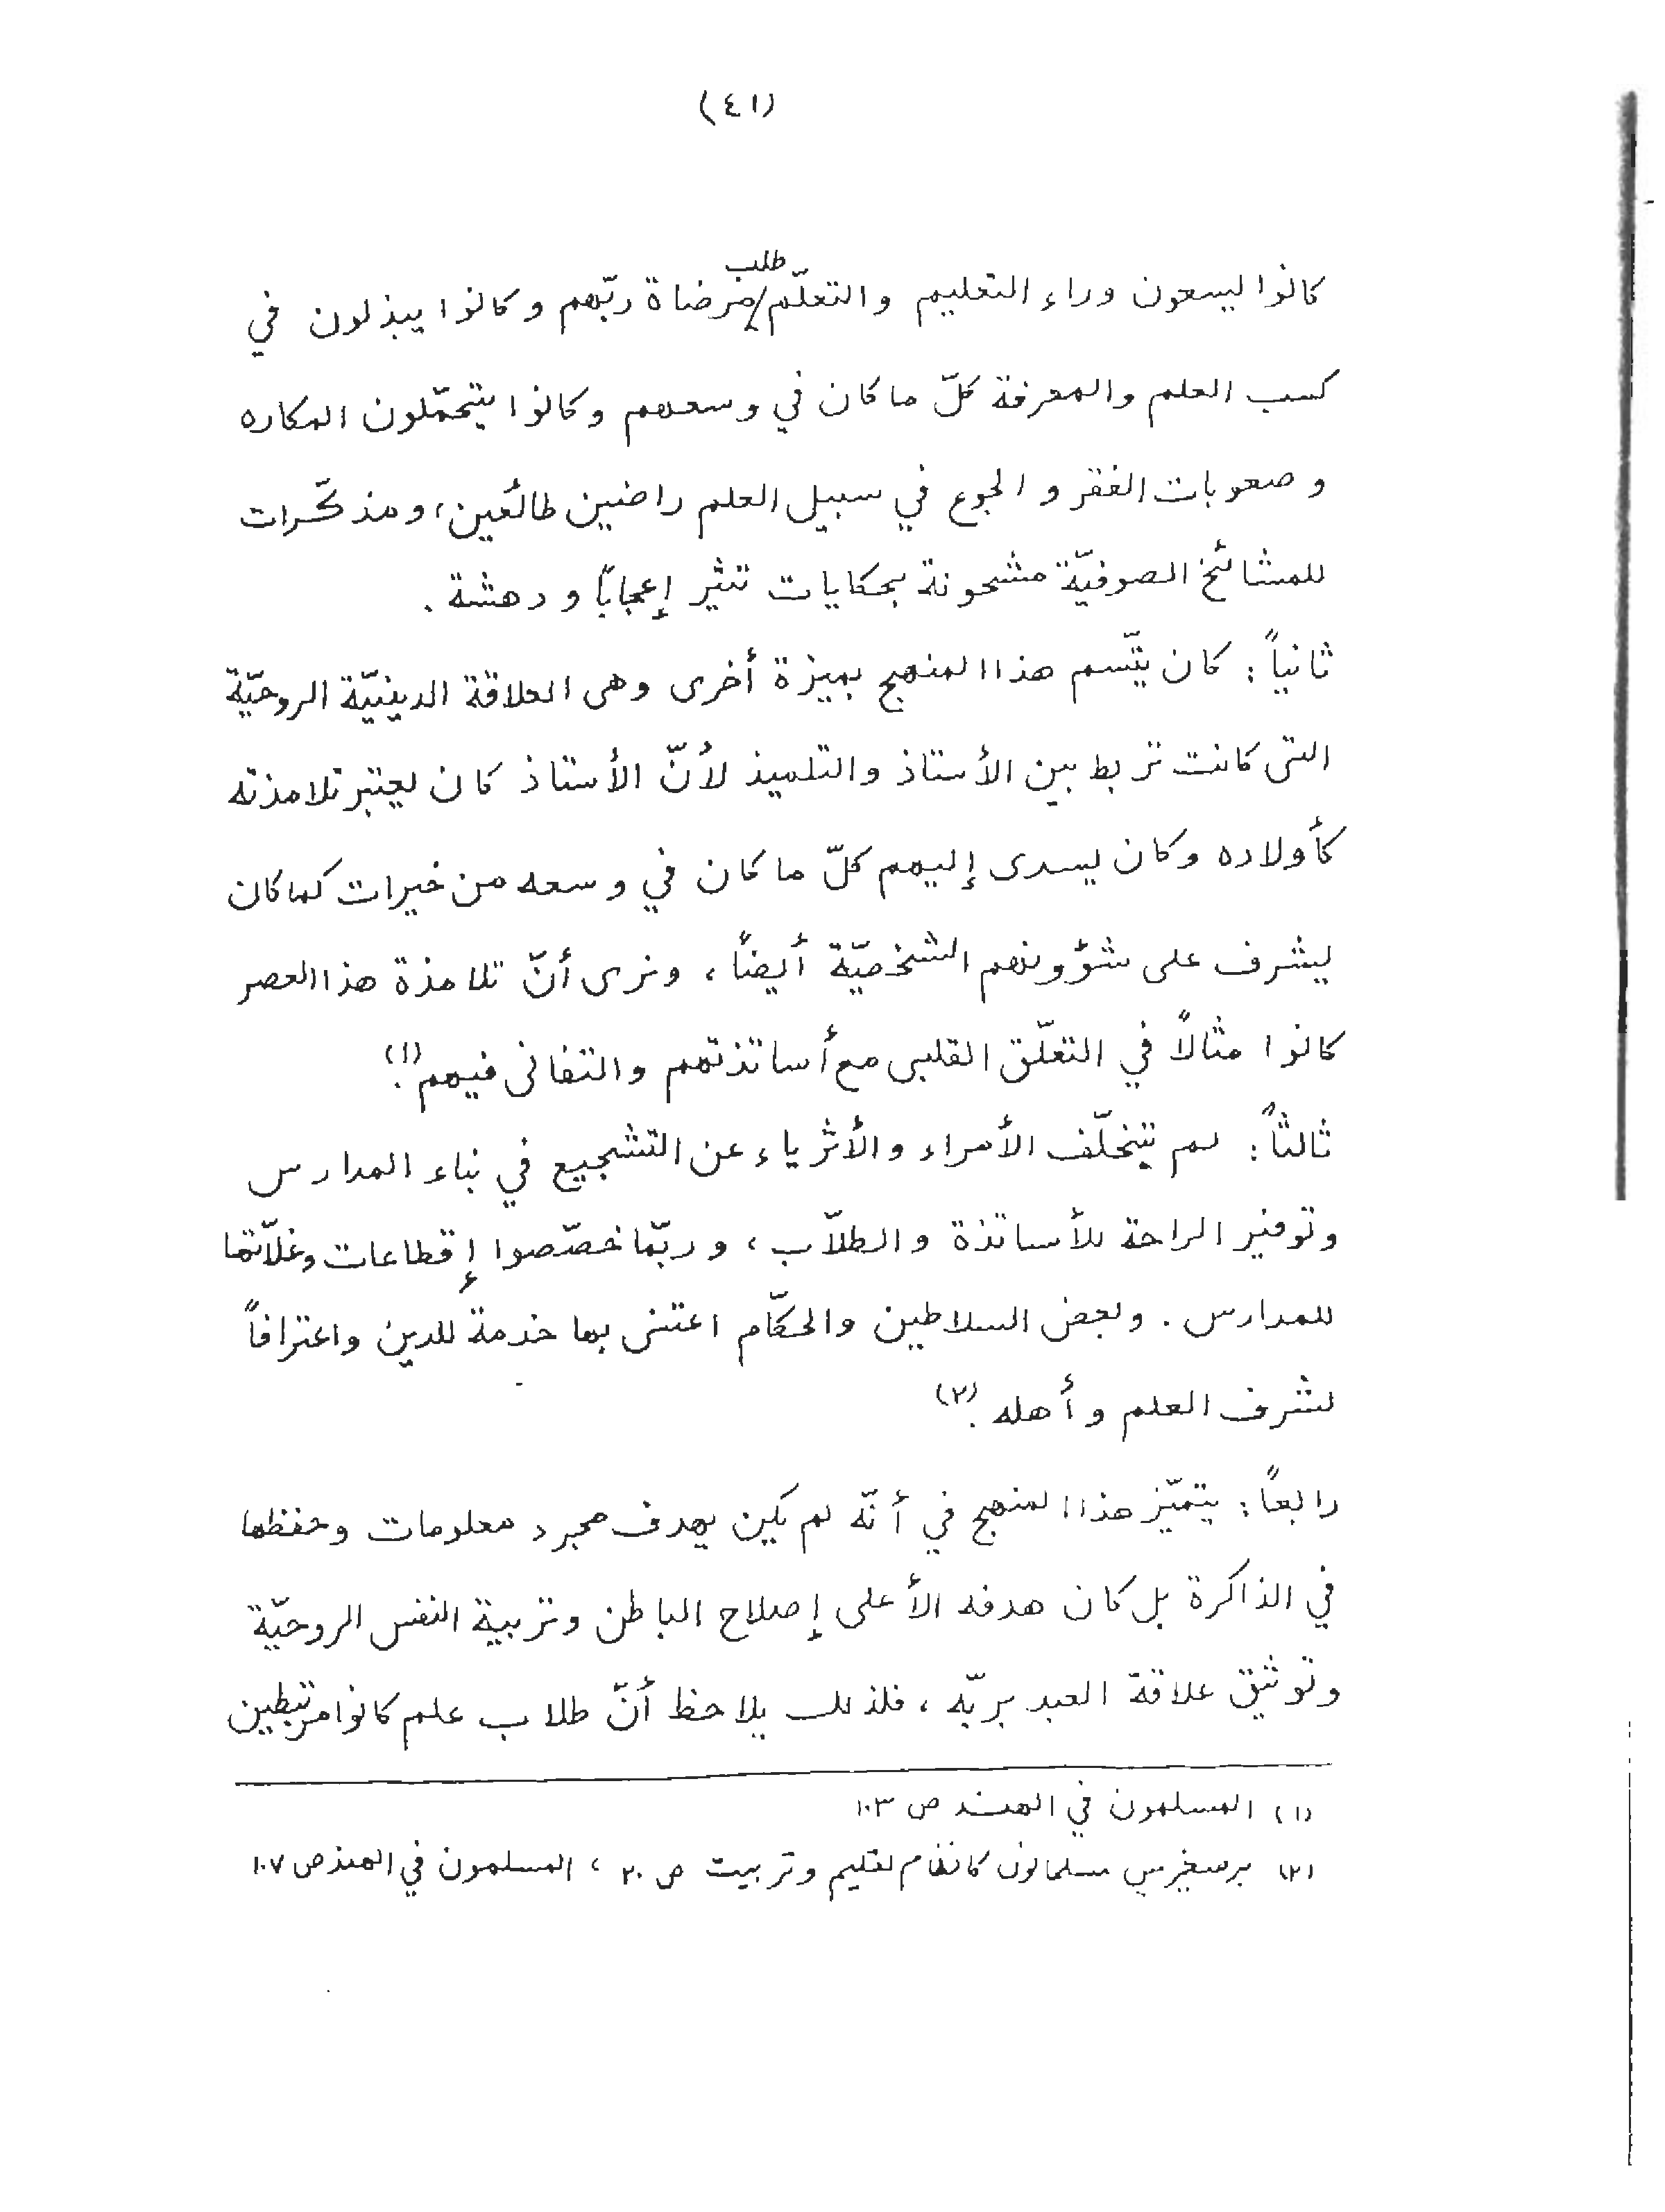 (٤١)
كانوا يسعون وراء التعليم والتعلّم طلب مرضاة ربّهم وكانوا يبذلون في
كسب العلم والمعرفة كلّ ما كان في وسعهم وكانوا يتحمّلون المكاره
وصعوبات الفقر والجوع في سبيل العلم راضين طائعين، ومذكّرات
للمشائخ الصوفيّة مشحونة بحكايات تثير إعجاباً ودهشة .
ثانياً : كان يتّسم هذا المنهج بميزة أخرى وهى العلاقة الدينيّة الروحيّة
التى كانت تربط بين الأستاذ والتلميذ لأنّ الأستاذ كان يعتبر تلامذته
كأولاده وكان يسدى إليهم كلّ ما كان في وسعه من خيرات كما كان
يشرف على شؤونهم الشخصيّة أيضاً ، ونرى أنّ تلامذة هذا العصر
كانوا مثالاً في التعلّق القلبى مع أساتذتهم والتفانى فيهم .(١)
ثالثاً : لم يتخلّف الأمراء والأثرياء عن التشجيع في بناء المدارس
وتوفير الراحة للأساتذة والطلاّب ، وربّما خصّصوا إقطاعات وغلاّتها
للمدارس . وبعض السلاطين والحكّام اعتنى بها خدمة للدين واعترافاً
لشرف العلم وأهله .(٢)
رابعاً : يتميّز هذا المنهج في أنّه لم يكن يهدف مجرد معلومات وحفظها
في الذاكرة بل كان هدفه الأعلى إصلاح الباطن وتربية النفس الروحيّة
وتوثيق علاقة العبد بربّه ، فلذلك يلاحظ أنّ طلاب علم كانوا مرتبطين
(١) المسلمون في الهند ص ١٠٣
(٢) برصغير میں مسلمانوں کا نظام تعليم وتربيت ص ٢٠ ، المسلمون في الهند ص ١٠٧